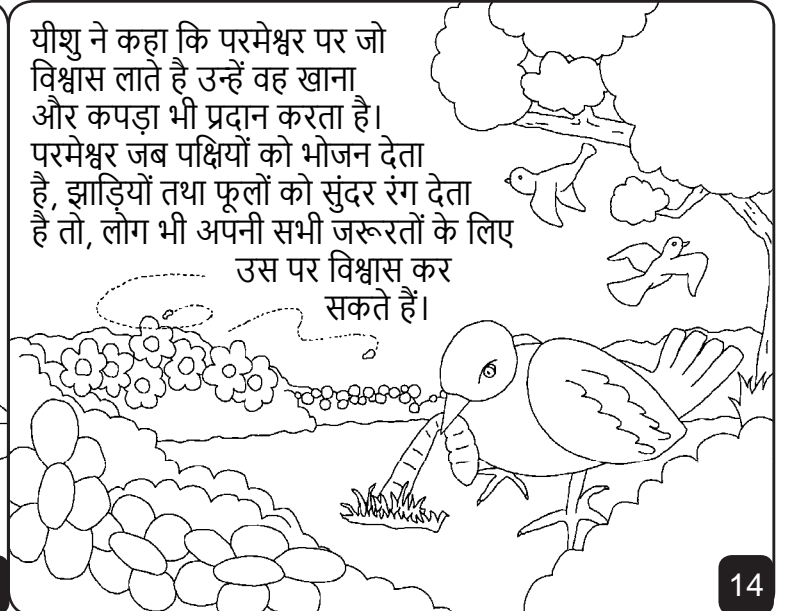 यीशु ने कहा कि परमेश्वर पर जो
विश्वास लाते है उन्हें वह खाना
और कपड़ा भी प्रदान करता है।
परमेश्वर जब पक्षियों को भोजन देता
है, झाड़ियों तथा फूलों को सुंदर रंग देता
है तो, लोग भी अपनी सभी जरूरतों के लिए
उस पर विश्वास कर
सकते हैं।
14